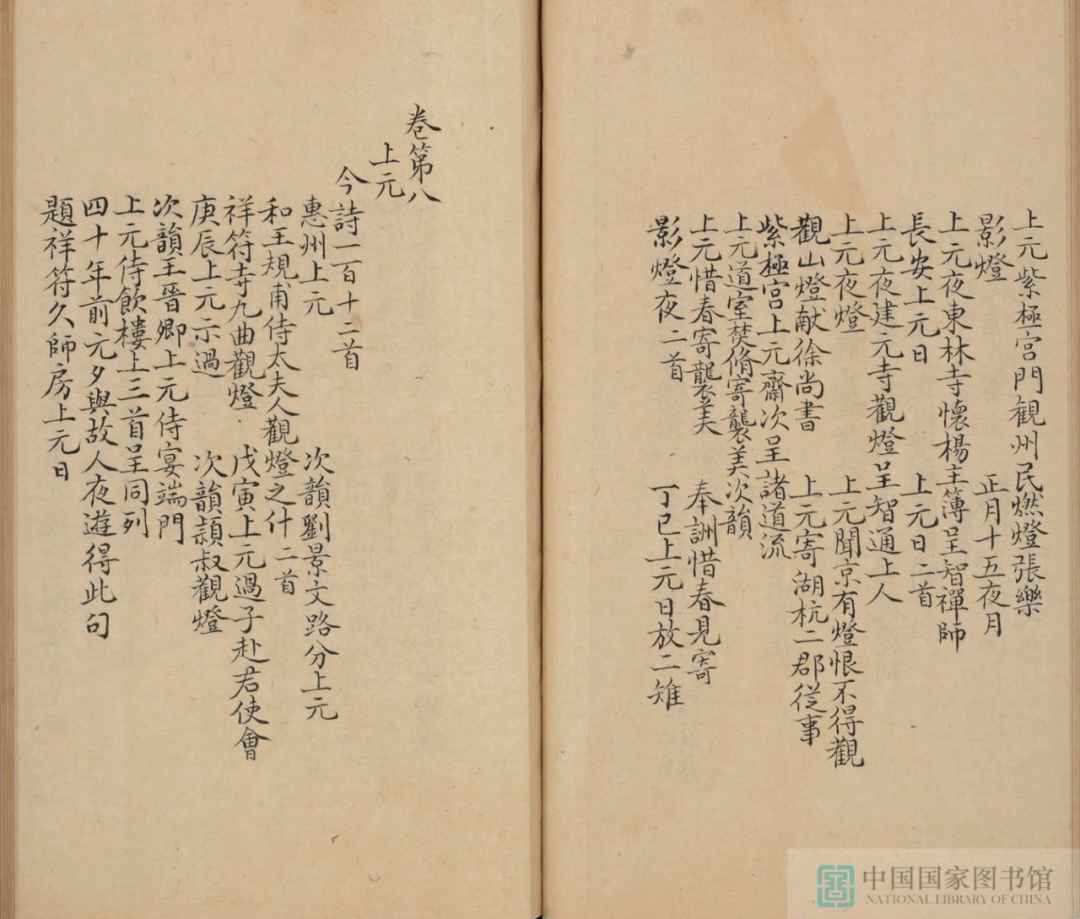 上元紫極宮門觀州民燃燈張樂
影燈　正月十五夜月
上元夜東林寺懷楊主簿呈智禪師
長安上元日　上元日二首
上元夜建元寺觀燈呈智通上人
上元夜燈　上元聞京有燈恨不得觀
觀山燈献徐尚書　上元寄湖杭二郡從事
紫極宮上元齋次呈諸道流
上元道室焚脩寄襲美次韻
上元惜春寄襲美　奉詶惜春見寄
影燈夜二首　丁巳上元日放二雉
卷第八
上元
今詩一百十二首
惠州上元　次韻劉景文路分上元
和王規甫侍太夫人觀燈之什二首
祥符寺九曲觀燈　戊寅上元過子赴君使會
庚辰上元示過　次韻頴叔觀燈
次韻王晉卿上元侍宴端門
上元侍飲樓上三首呈同列
四十年前元夕與故人夜遊得此句
題祥符久師房上元日
中国国家图书馆
NATIONAL LIBRARY OF CHINA